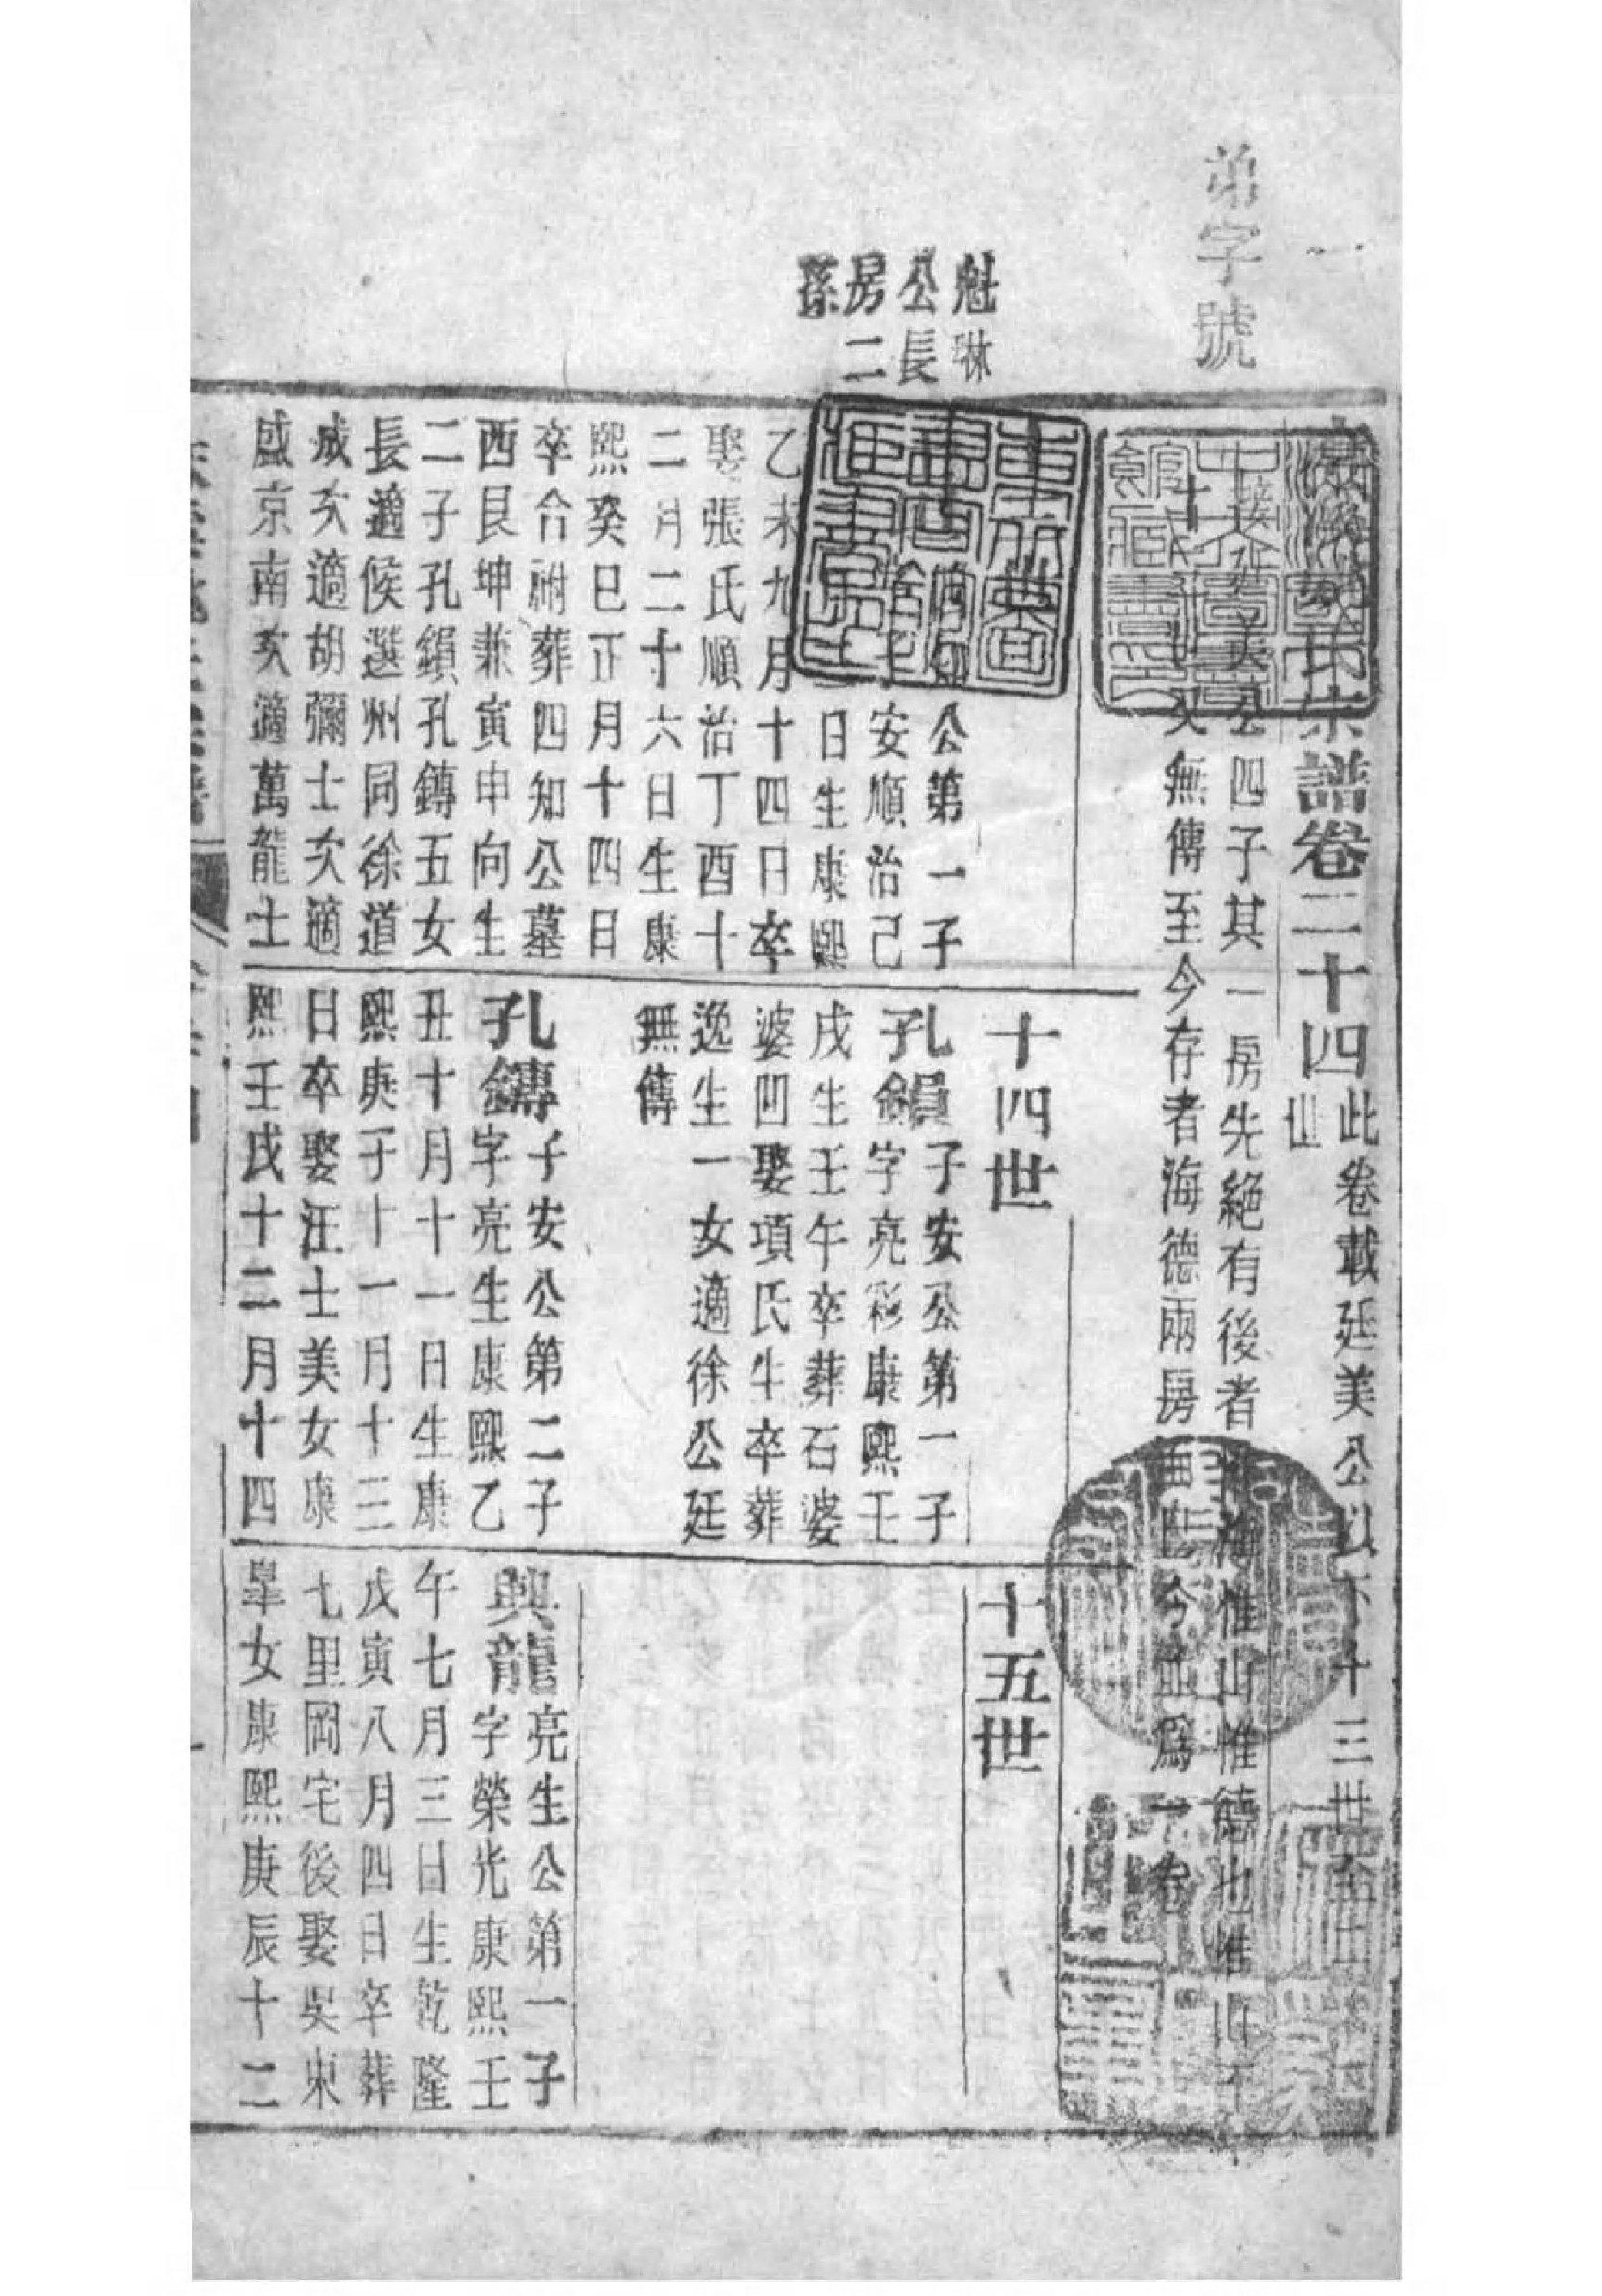 弟字號
一
魁琳
公長
房二
孫
氏宗譜卷二十四此卷載廷美公以下十三世至二十
世
美公四子其一房先絕有後者惟海惟山惟德也惟山
又無傳至今存者海德兩房由此今並爲一卷
公第一子
安順治己
日生康熙
乙未九月十四日卒
娶張氏順治丁酉十
二月二十六日生康
熙癸巳正月十四日
卒合祔葬四知公墓
西艮坤兼寅申向生
二子孔鎖孔鑄五女
長適候選州同徐道
成次適胡彌士次適
盛京南次適萬龍士
十四世
孔鎖子安公第一子
字亮彩康熙壬
戌生壬午卒葬石婆
婆凹娶項氏生卒葬
逸生一女適徐公廷
無傳
孔鑄子安公第二子
字亮生康熙乙
丑十月十一日生康
熙庚子十一月十三
日卒娶汪士美女康
熙壬戌十二月十四
十五世
興龍亮生公第一子
字榮光康熙壬
午七月三日生乾隆
戊寅八月四日卒葬
七里岡宅後娶吳東
皐女康熙庚辰十二